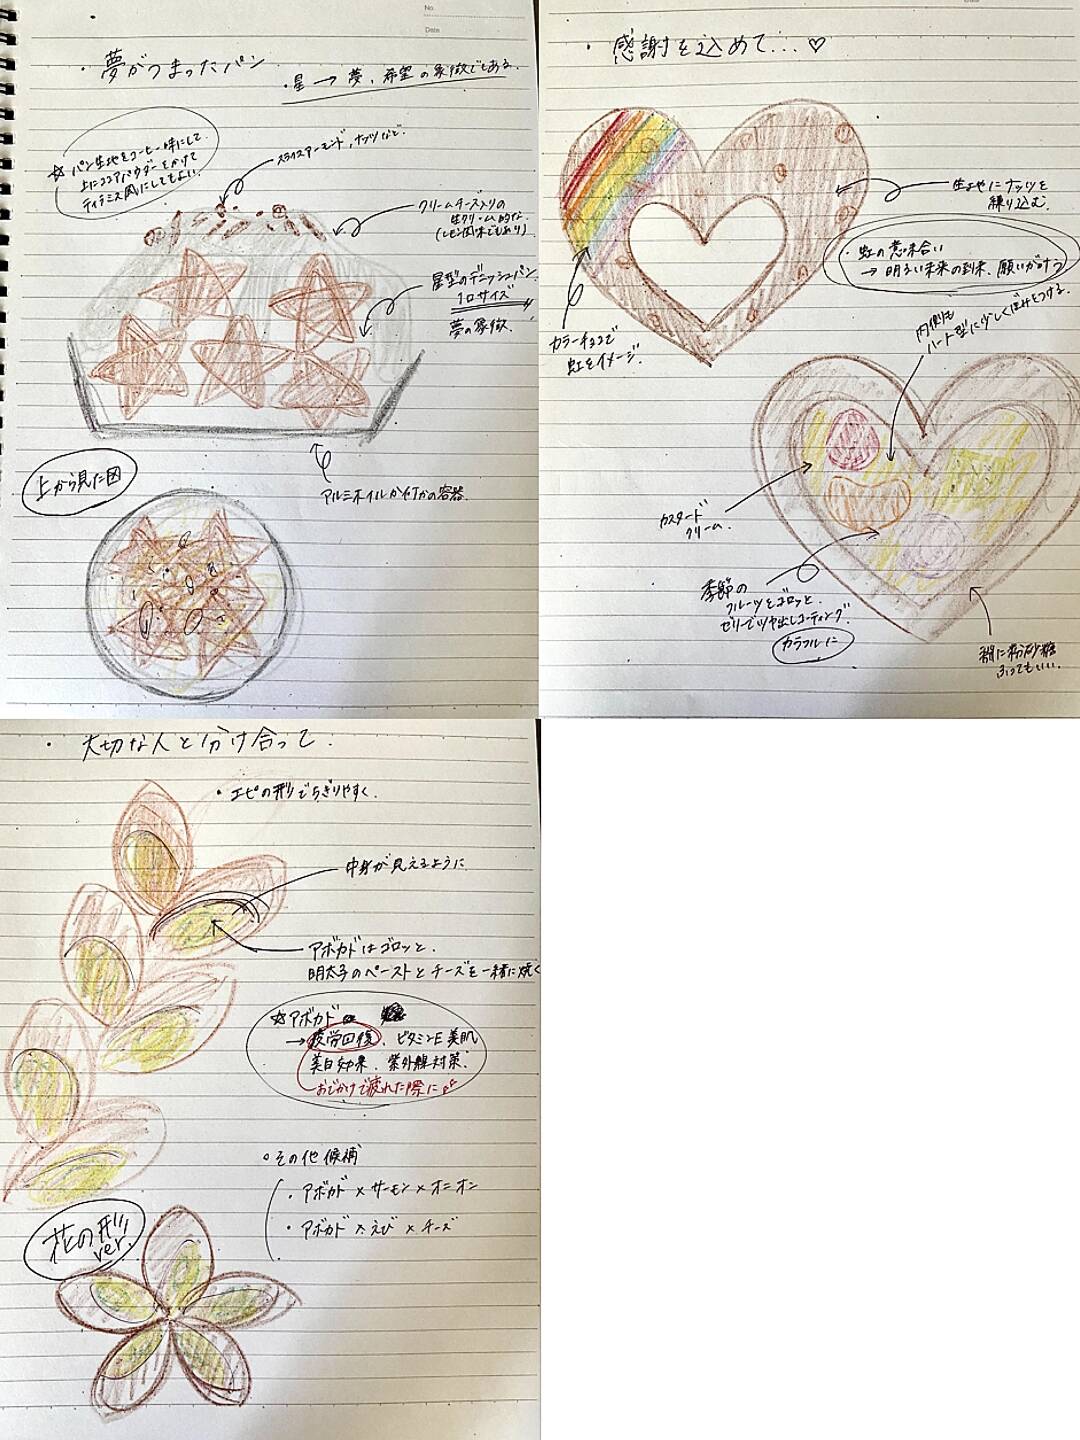 No.
Date
・夢がつまったパン
・星→夢、希望の象徴である。
☆パン生地をコーヒー味にして
上にココアパウダーをかけて
ティラミス風にしてもよい。
スライスアーモンド、ナッツなど。
クリームチーズ入りの
生クリーム的な
(レモン風味でもあり)
星型のデニッシュパン
1口サイズ
夢の象徴、
アルミホイルか何かの容器
上から見た図
Date
・感謝を込めて…♡
生地にナッツを
練り込む。
・虹の意味合い
→明るい未来の到来、願いが叶う
カラーチョコで
虹をイメージ。
内側も
ハート型に少しくぼみをつける。
カスタード
クリーム。
季節の
フルーツをゴロッと、
ゼリーでツヤ出しコーティング。
カラフルに
に粉砂糖
ふってもいい。
・大切な人と分け合って。
・エピの形でちぎりやすく。
中身が見えるように
アボカドはゴロッと。
明太子のペーストとチーズを一緒に焼く
☆アボカド
→疲労回復、ビタミンE美肌
美白効果、紫外線対策。
おでかけで疲れた際に
・その他候補
・アボカド×サーモン×オニオン
・アボカド×えび×チーズ
花の形
ver.